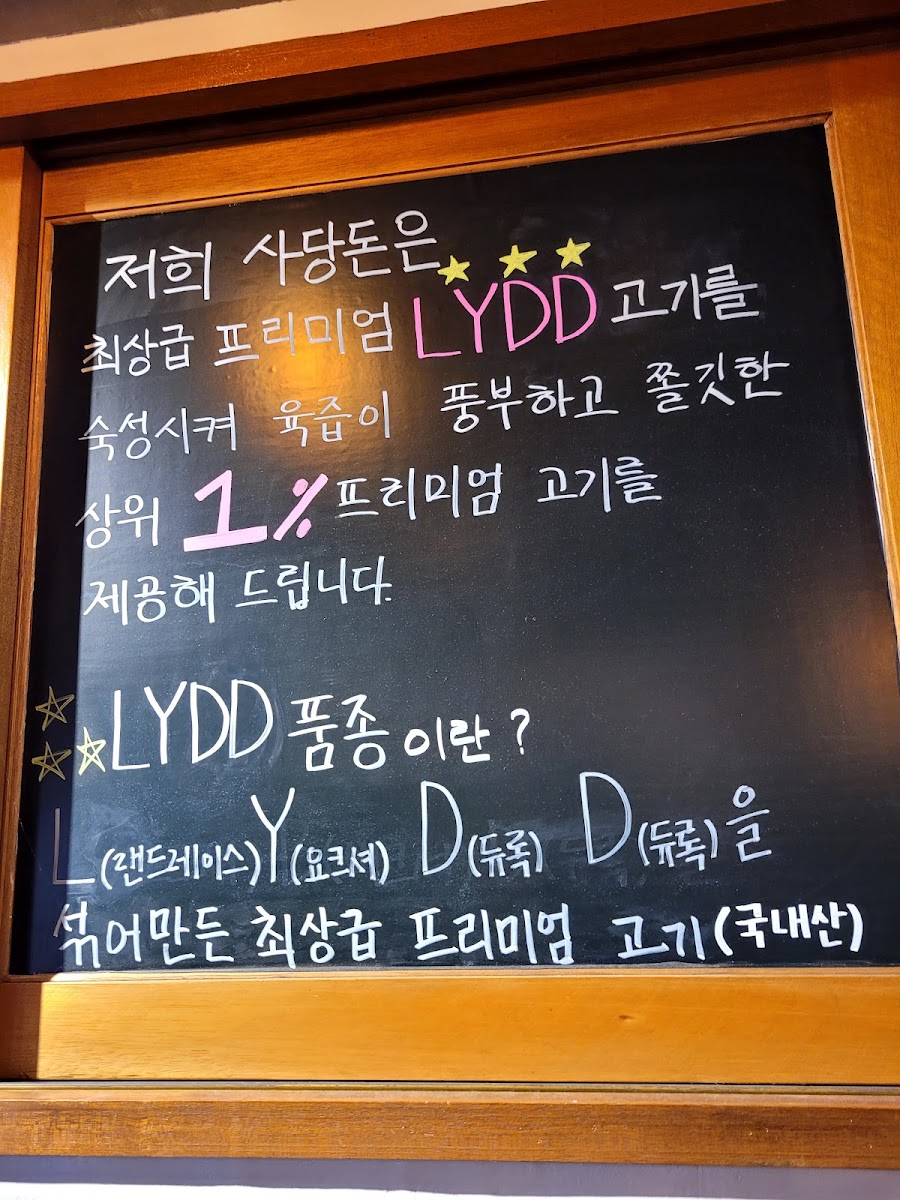 저희 사당돈은
최상급 프리미엄 LYDD 고기를
숙성시켜 육즙이 풍부하고 쫄깃한
상위 1% 프리미엄 고기를
제공해 드립니다.
LYDD 품종이란?
L(랜드레이스) Y(요크셔) D(듀록) D(듀록)을
섞어만든 최상급 프리미엄 고기(국내산)